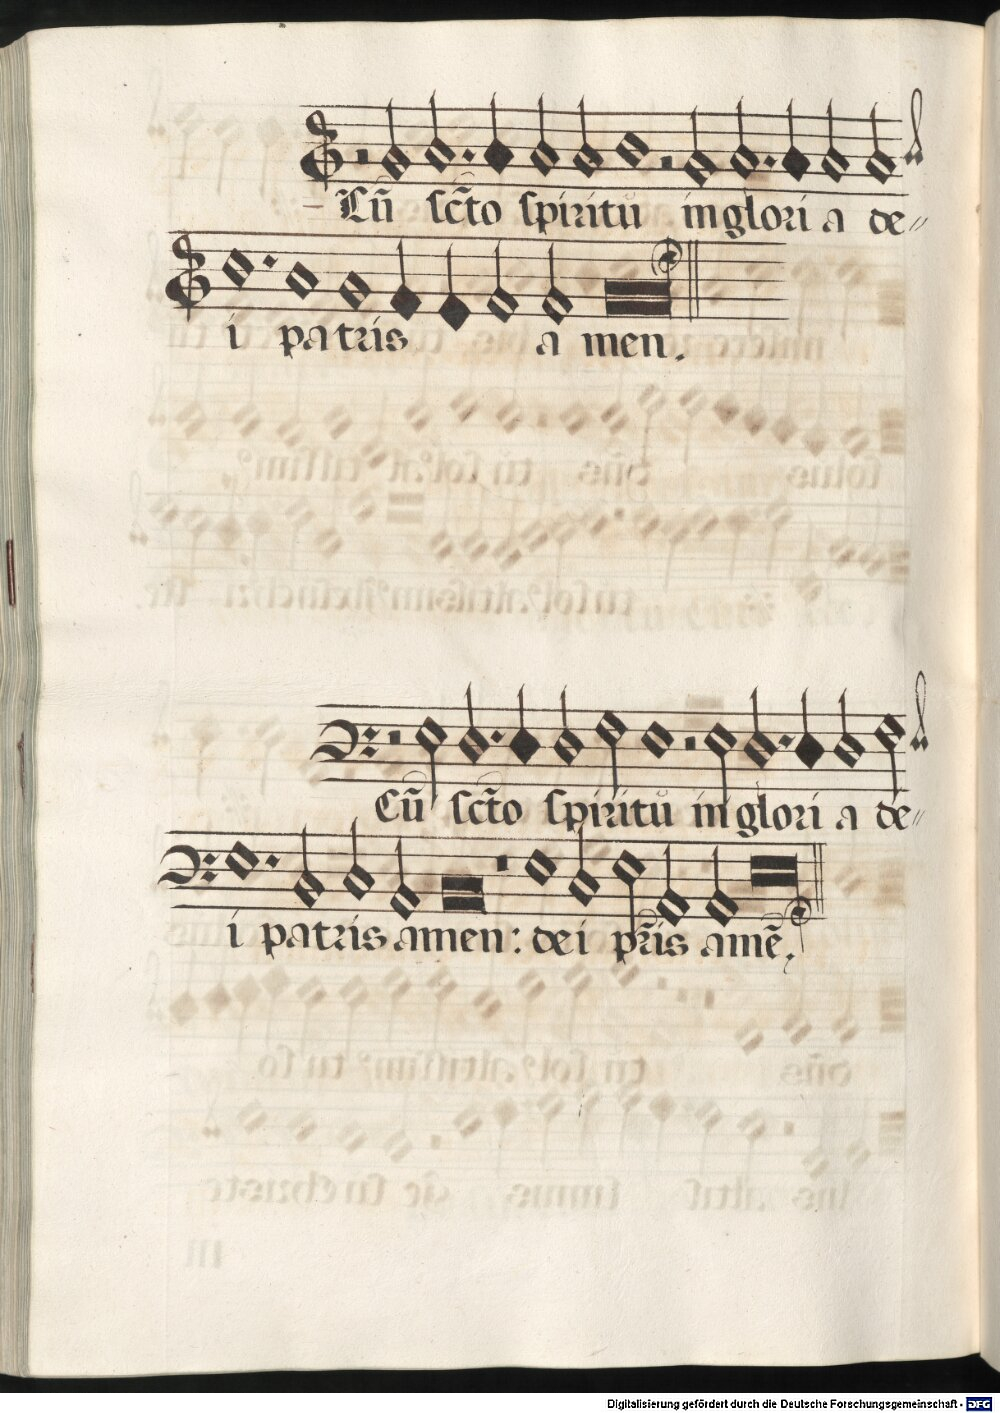 Cū sc̄to spiritū in glori a de〃
i patris a men.
Cū sc̄to spiritū in glori a de〃
i patris amen: dei pr̄is amē.
Digitalisierung gefördert durch die Deutsche Forschungsgemeinschaft - DFG